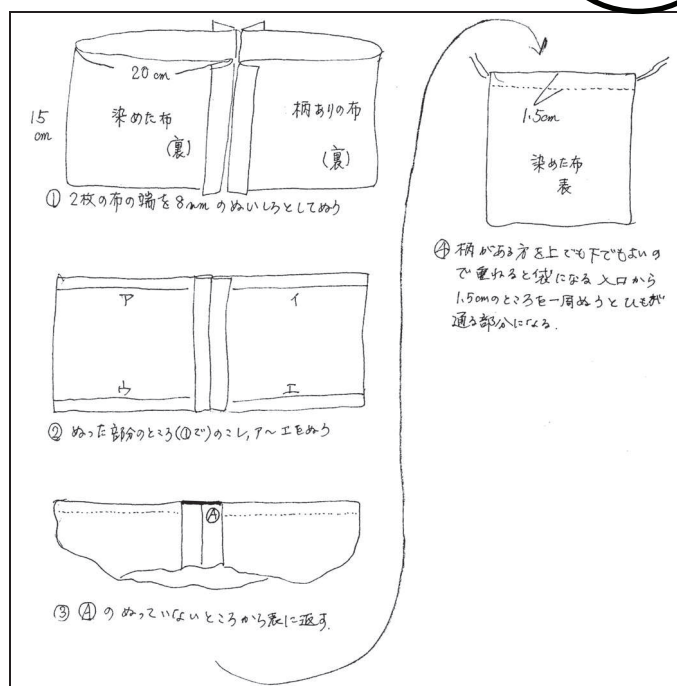 20cm
15
cm
染めた布
(裏)
柄ありの布
(裏)
① 2枚の布の端を8mmのぬいしろとしてぬう
ア
イ
ウ
エ
② ぬった部分のところ(①で)のこし,ア～エをぬう
Ⓐ
③ Ⓐのぬっていないところから表に返す.
1.5cm
染めた布
表
④ 柄がある方を上でも下でもよいの
で重ねると袋になる 入口から
1.5cmのところを一周ぬうとひもが
通る部分になる.